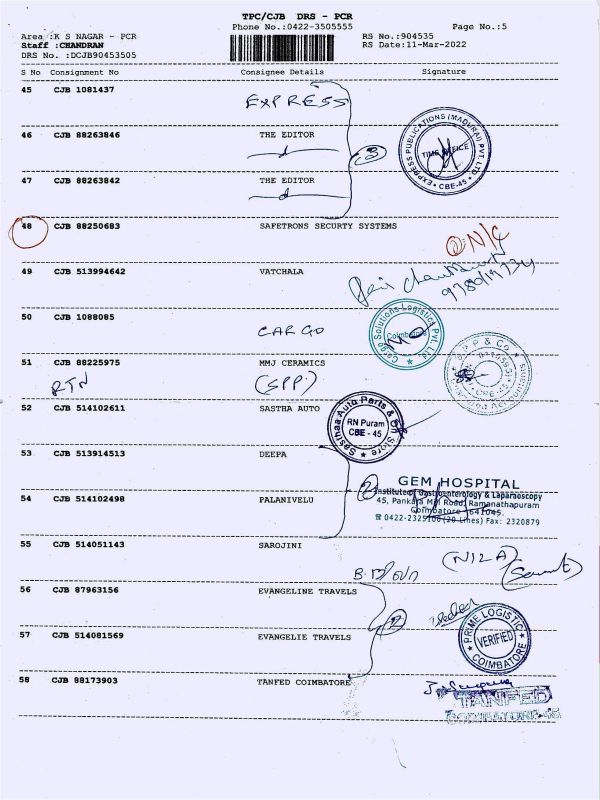 TPC/CJB DRS - PCR
Phone No.:0422-3505555
Page No.:5
Area :K S NAGAR - PCR
RS No.:904535
Staff :CHANDRAN
RS Date:11-Mar-2022
DRS No. :DCJB90453505
S No Consignment No Consignee Details Signature
45 CJB 1081437
EXPRESS
46 CJB 88263846 THE EDITOR
EXPRESS PUBLICATIONS (MADURAI) PVT. LTD
TIME OFFICE
CBE-45
3
47 CJB 88263842 THE EDITOR
48 CJB 88250683 SAFETRONS SECURTY SYSTEMS
N/C
49 CJB 513994642 VATCHALA
50 CJB 1088085
CARGO
Cargo Solutions Logistics Pvt. Ltd
Coimbatore
51 CJB 88225975 MMJ CERAMICS
RTN (SPP)
52 CJB 514102611 SASTHA AUTO
Sasthaa Auto Parts & Oil Store
RN Puram
CBE - 45
53 CJB 513914513 DEEPA
2
GEM HOSPITAL
Institute of Gastroenterology & Laparoscopy
54 CJB 514102498 PALANIVELU
45, Pankaja Mill Road, Ramanathapuram
Coimbatore - 641045.
0422-2325100 (20 Lines) Fax: 2320879
55 CJB 514051143 SAROJINI
56 CJB 87963156 EVANGELINE TRAVELS
2
PRIME LOGISTIC
VERIFIED
COIMBATORE
57 CJB 514081569 EVANGELIE TRAVELS
58 CJB 88173903 TANFED COIMBATORE
TANFED
COIMBATORE-45